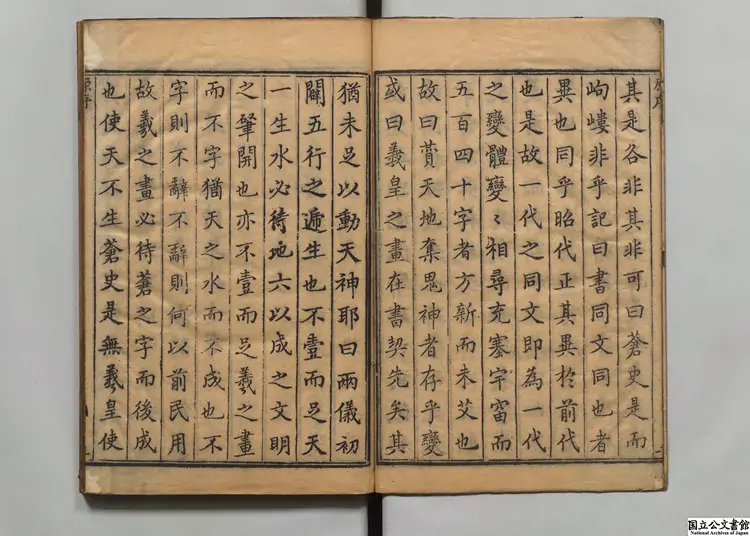 其是各非其非可曰蒼史是而
岣嶁非乎記曰書同文同也者
異也同乎昭代正其異於前代
也是故一代之同文即為一代
之變體變〻相尋充塞宇宙而
五百四十字者方新而未艾也
故曰贲天地奪鬼神者存乎變
或曰羲皇之畫在書契先矣其
猶未足以動天神耶曰兩儀初
闢五行之遞生也不壹而足天
一生水必待地六以成之文明
之肇開也亦不壹而足羲之畫
而不字猶天之水而不成也不
字則不辭不辭則何以前民用
故羲之畫必待蒼之字而後成
也使天不生蒼史是無羲皇使
原序
国立公文書館
National Archives of Japan